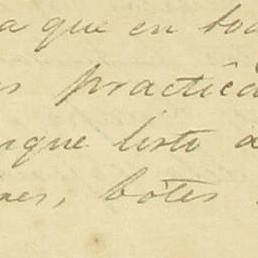 a que en tod
s practica
nque listo a
nes, botes